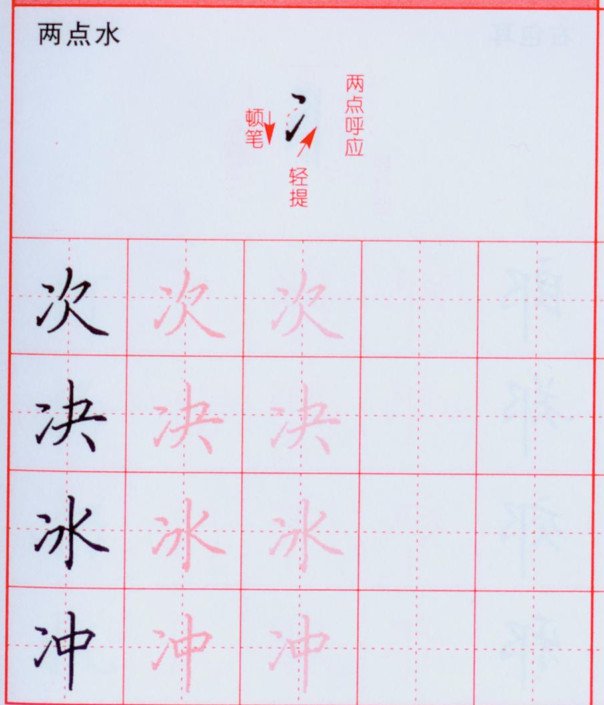 两点水
两点呼应
顿笔
冫
轻提
次 次 次
决 决 决
冰 冰 冰
冲 冲 冲